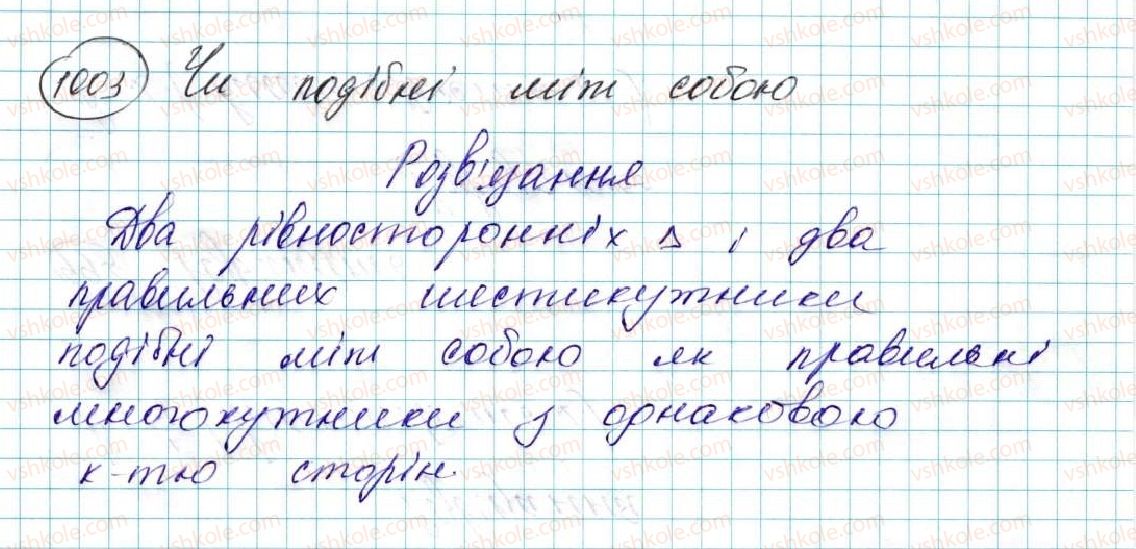 1003 Чи подібні між собою
Розв'язання
Два рівносторонніх Δ і два
правильних шестикутники
подібні між собою як правильні
многокутники з однаковою
к-тю сторін.